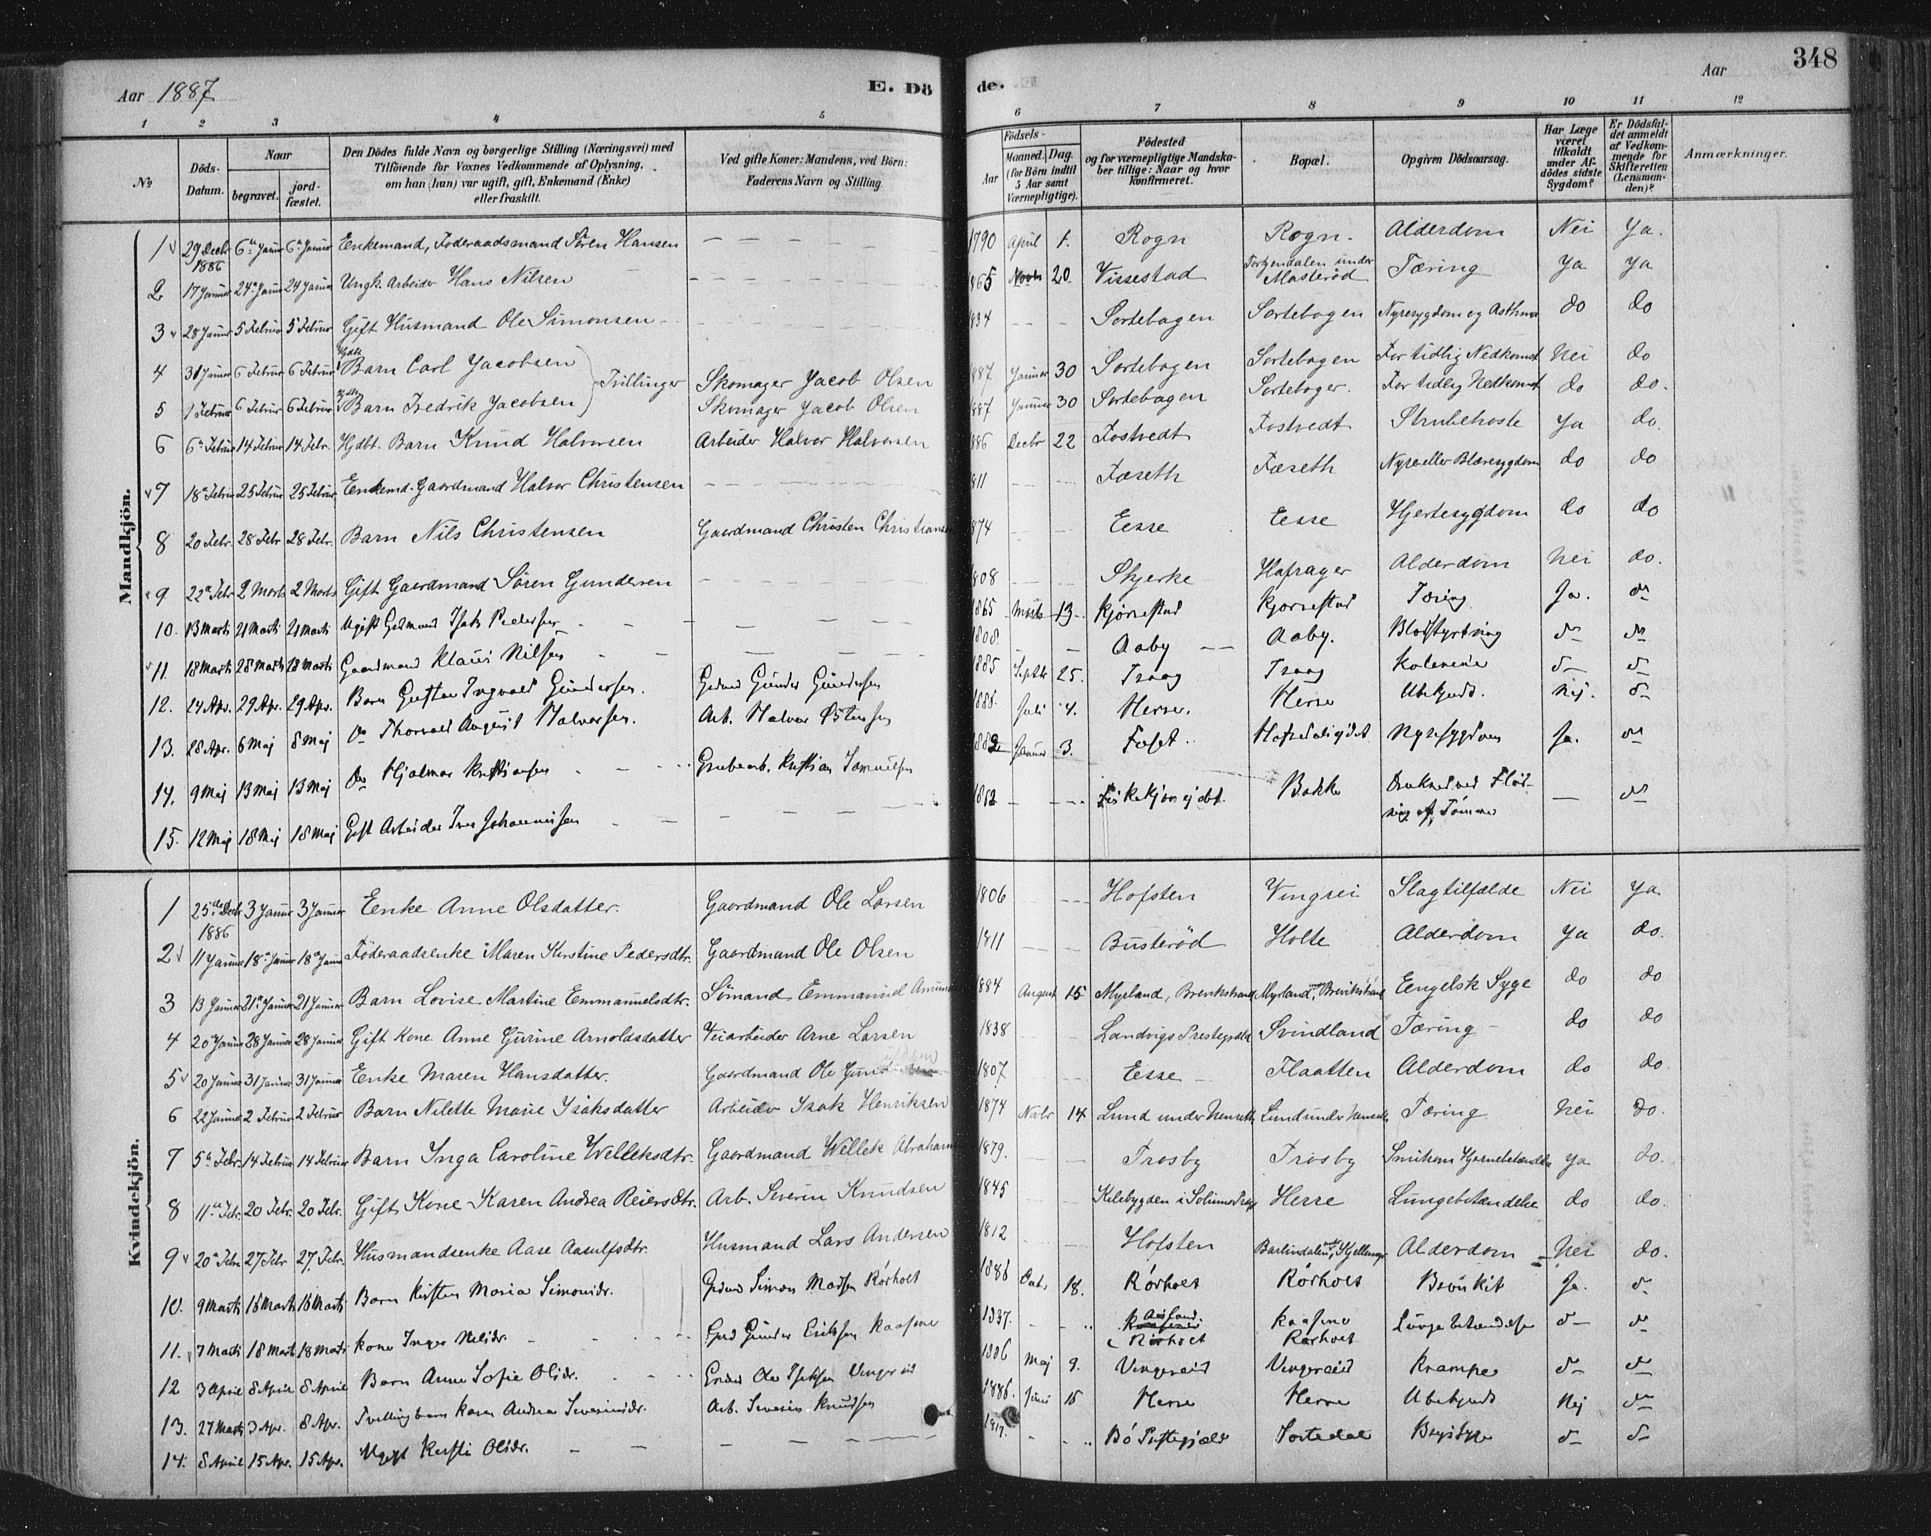 Aar 1887 E. Dö de. Aar 348
1 2 3 4 5 6 7 8 9 10 11 12
No Döds-Datum. Naar begravet. jord-fæstet. Den Dödes fulde Navn og borgerlige Stilling (Næringsvei) med Tilföiende for Voxnes Vedkommende af Oplysning, om han (hun) var ugift, gift, Enkemand (Enke) eller fraskilt. Ved gifte Koner: Mandens, ved Börn: Faderens Navn og Stilling. Födsels- Aar Maaned. Dag. (for Börn indtil 5 Aar samt Værnepligtige). Födested og for værnepligtige Mandska-ber tillige: Naar og hvor konfirmeret. Bopæl. Opgiven Dödsaarsag. Har Læge været tilkaldt under Af-dödes sidste Sygdom? Er Dödsfal-det anmeldt af Vedkom-mende for Skifteretten (Lensman-den)? Anmærkninger.
Mandkjön.
1 29 Decbr 1886 6te Januar 6te Januar Enkemand, Föderaadsmand Sören Hansen 1790 April 1. Rogn Rogn. Alderdom Nei Ya.
2 17 Januar 24 Januar 24 Januar Ungk. Arbeider Hans Nilsen 1865 Novbr 20 Vissestad under Masteröd Tæring Ya Ya
3 28 Januar 5 Februar 5 Februar Gift Husmand Ole Simonsen 1834 Sortebogen Sortebogen Nyresygdom og Asthma do do
4 31 Januar 6 Februar 6 Februar Barn Carl Jacobsen Trillinger Skomager Jacob Olsen 1887 Januar 30 Sortebogen Sortebogen For tidlig Nedkomst Nei do
5 1 Februar 6 Februar 6 Februar Barn Fredrik Jacobsen Skomager Jacob Olsen 1887 Januar 30 Sortebogen Sortebogen. For tidlig Nedkomst do do.
6 6te Februar 14 Februar 14 Febr. Hjdbt. Barn Knud Halvorsen Arbeider Halvor Halvorsen 1886 Decbr 22 Fostvedt Fostvedt Strubehoste Ya do.
7 18 Februar 25 Februar 25 Februar Enkemd. Gaardmand Halvor Christensen 1811 Fæseth Fæseth Nyre eller Blæresygdom do do
8 20 Febr. 28 Febr 28 Febr. Barn Nils Christensen Gaardmand Christen Christiansen 1874 Eesse Eesse Hjertesygdom do do
9 22 Febr 2 Marts 2 Marts Gift Gaardmand Sören Gundersen 1808 Skjerke Hafsager Alderdom Nei do.
10. 13 Marts 21 Marts 21 Marts Ugift Gdmand Isak Pedersen 1865 Marts 13. Kjörrestad Kjörrestad Tæring Ja. do
11. 18 Marts 28 Marts 28 Marts Gaardmand Klaus Nilsen 1808. Aaby Aaby. Blodstyrtning do do
12. 24 Apr. 29 Apr. 29 Apr. Barn Gustav Ingvald Gundersen. Gdmd Gunder Gundersen 1885 Septbr 25. Traag Traag Kolerine do do
13. 28 Apr. 6 Maj 8 Maj do Thorvald August Halvorsen. Arb. Halvor Östensen 1886. Juli 4. Herre. Herre Ubekjendt. Nej. do
14. 9 Maj 13 Maj 13 Maj do Hjalmar Kristiansen Grubearb. Kristian Samuelsen 1882 Januar 3. Foset. Nyresygdom Ja. do
15. 12 Maj 18 Maj 18 Maj Gift Arbeider Iver Johannessen 1852 Bakke Druknet ved Flöd-ning af Tömmer do
Kvindekjön.
1 25de Decbr 1886 3 Januar 3 Januar Eenke Anne Olsdatter. Gaardmand Ole Larsen 1806 Hofsten Vingrei Slagtilfælde Nei Ya
2 11 Januar 18 Januar 18 Januar Föderaadsenke Maren Kirstine Pedersdtr. Gaardmand Ole Olsen 1811 Busteröd Holte Alderdom Ya do.
3 13 Januar 21 Januar 21 Januar Barn Lovise Martine Emmanuelsdtr. Sömand Emmanuel 1884 August 15 Myrland, Brevikstrand Myrland, Brevikstrand Eengelsk Syge do do
4 20 Januar 28 Januar 28 Januar Gift Kone Anne Gurine Arnoldsdatter Veiarbeider Arne Larsen 1838 Landvigs Prestegjeld Svindland Tæring do do
5 20 Januar 31 Januar 31 Januar Eenke Maren Hansdatter. Gaardmand Ole 1807 Eesse Flaatten Alderdom do do.
6 22 Januar 2 Februar 2 Februar Barn Nilette Marie Isaksdatter Arbeider Isak Henriksen 1874 Novbr 14 Lund under Lund under Tæring Nei do.
7 5te Febr. 14 Februar 14 Februar Barn Inga Caroline Willeksdtr. Gaardmand Willek Abraham 1879. Trosby Trosby Hjernebetændelse Ya do.
8 11te Febr. 20 Febr. 20 Febr. Gift Kone Karen Andrea Reiersdtr. Arb. Severin Knudsen 1845 Kilebygden i Solums Herre Lungebetændelse do do.
9 20 Febr 27 Febr 27. Febr. Husmandsenke Aase Aasulfsdtr. Husmand Lars Andersen 1812 Hofsten Barlindalen Alderdom Nei do.
10. 9 Marts 16 Marts 16 Marts Barn Kirsten Maria Simonsdr. Gdmd Simon Madsen Rörholt 1886 Oct. 18. Rörholt Rörholt Bronkit Ja. do
11. 7 Marts 18 Marts 18 Marts Kone Inger Nilsdr. Gmd Gunder Eriksen Kaasene 1837. Rörholt Kaasene Rörholt Lungebetændelse do do
12 3 April 8 April 8 April Barn Anne Sofie Olsdr. Gmd Ole Isaksen Vingereid 1886 Maj 9. Vingereid Vingereid Krampe do do
13. 27 Marts 3 Apr. 8 Apr. Tvillingbarn Karen Andrea Severinsdr. Arb. Severin Knudsen 1886. Juni 15 Herre Herre Ubekjendt Nej do
14. 8 April 15 Apr. 15 Apr. Ugift Kirsti Olsdr. 1817. Bö Prestegjæld Sortedal Brystsyge do do